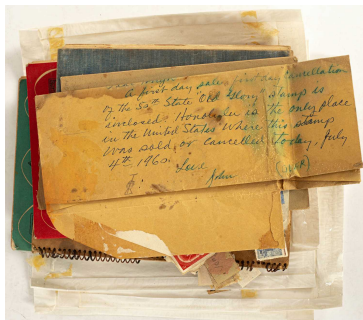 A first day sales first day cancellation
of the 50th State "Old Glory" stamp is
enclosed. Honolulu is the only place
in the United States where this stamp
was sold or cancelled today, July
4th 1960.
Love
John